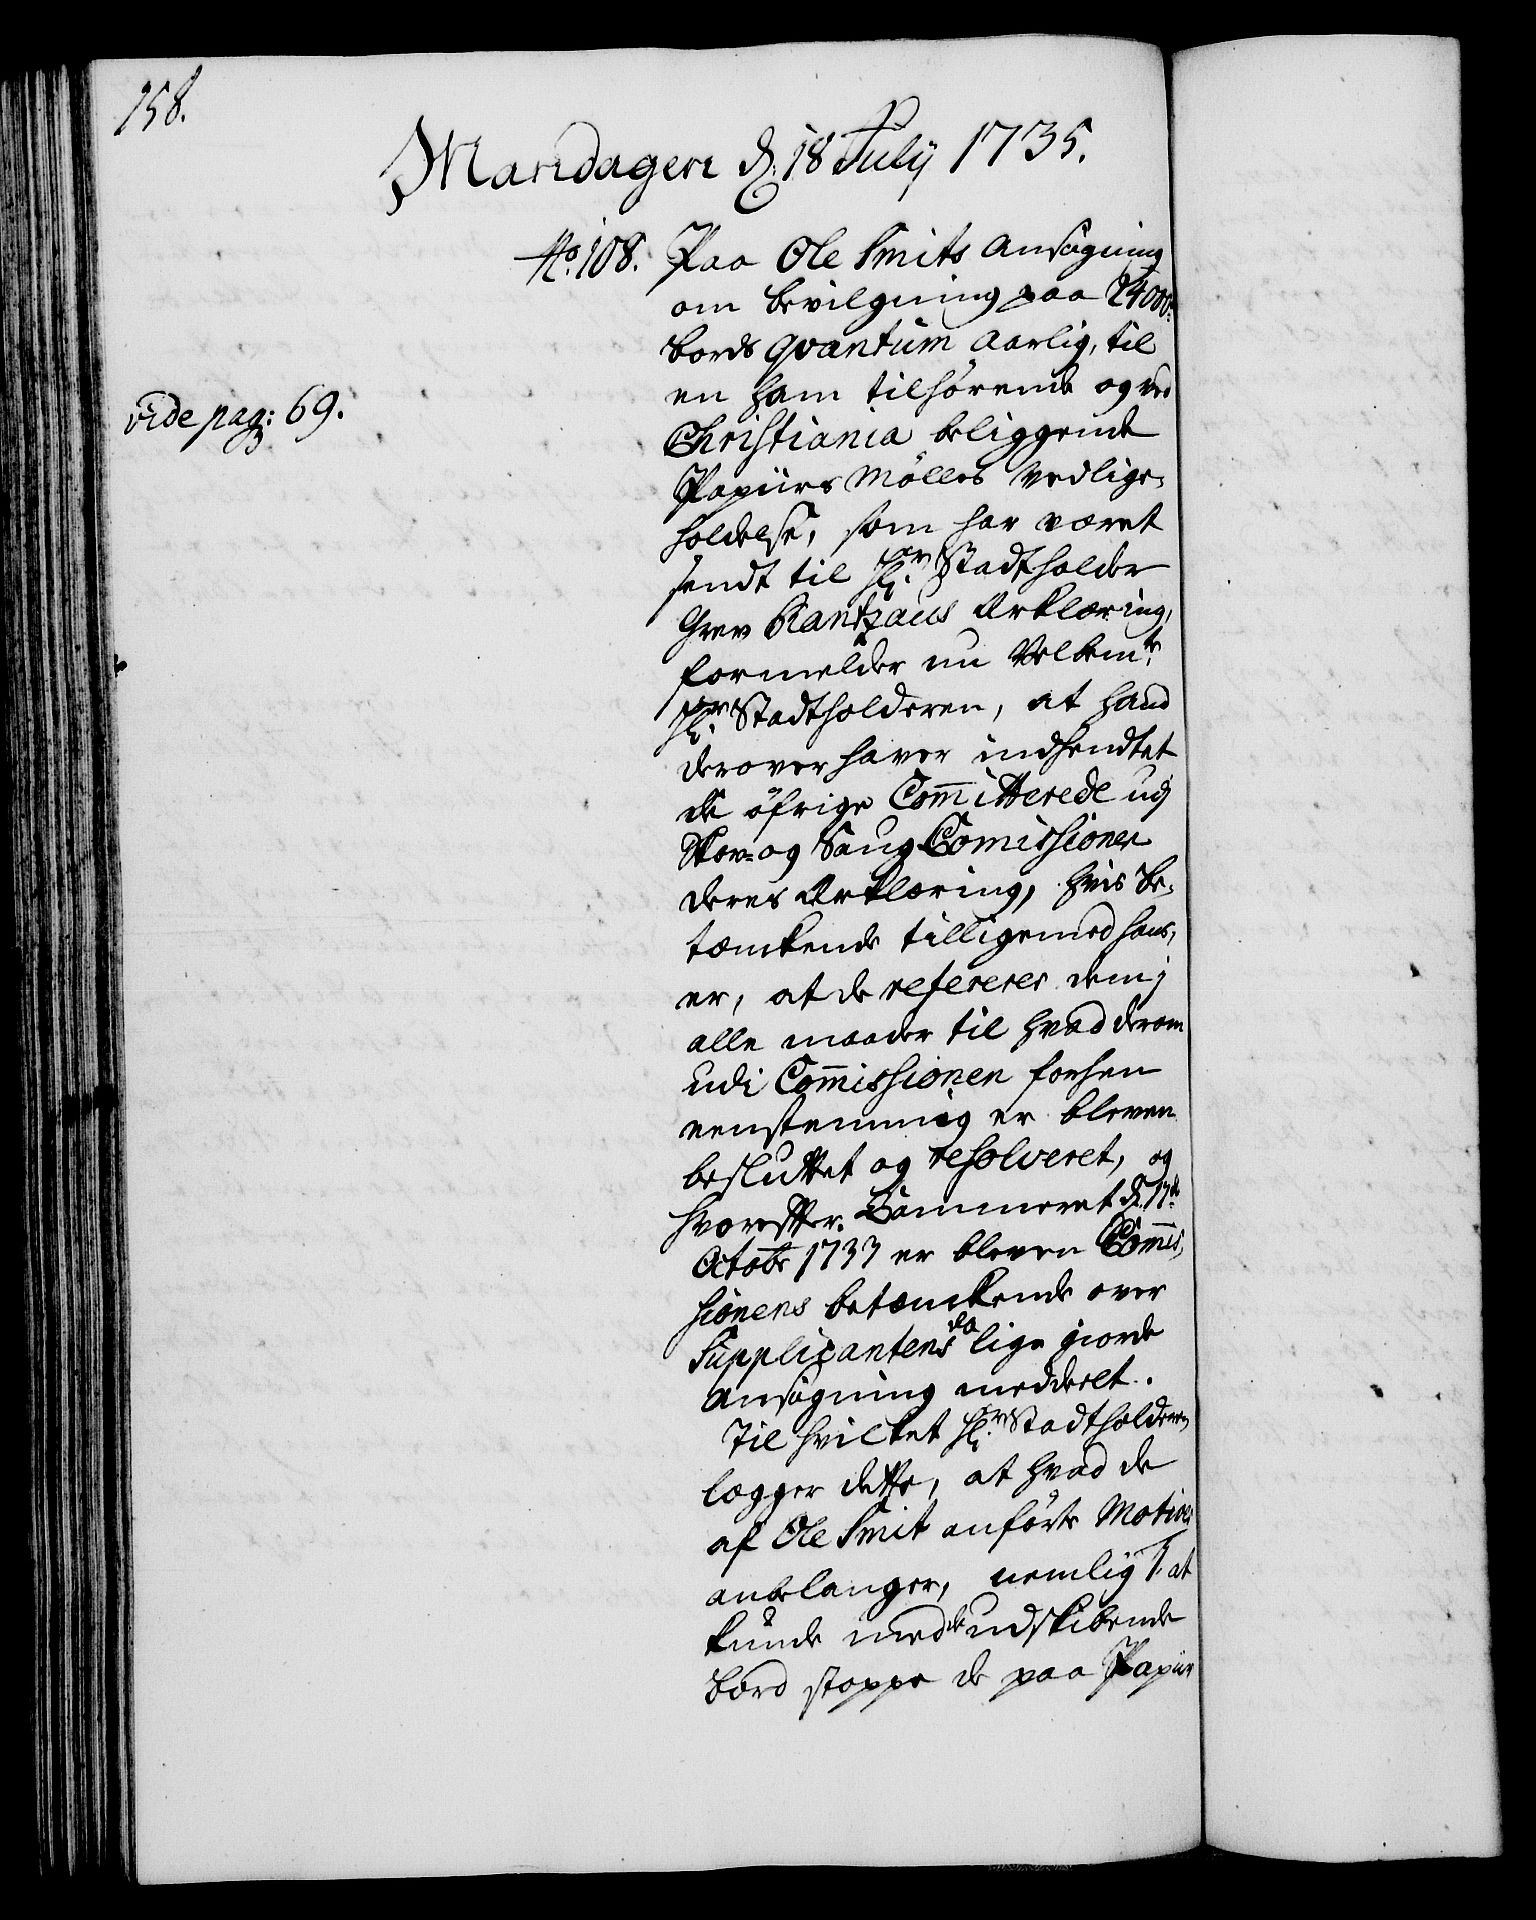 158.
Mandagen d. 18 July 1735.
No. 108. Paa Ole Smits Ansøgning
om bevilgning paa 24000
bords qvantum aarlig, til
en ham tilhørende og ved
Christiania beliggende
Papiirs Mølles vedlige-
holdelse, som har været
sendt til Hr. Stadtholder
Grev Rantzaus Erklæring,
formelder nu Velbemte
Hr. Stadtholderen, at hand
derover haver indhendtet
de öfrige Committerede udj
Skov- og Saug Comissionen
deres Erklæring, hvis be-
tænkende tilligemed hans,
er, at de refererer dem j
alle maader til hvad derom
udi Commissionen forhen
eenstemmig er bleven
besluttet og resolveret, og
hvorefter Cammeret d. 17de
Octobr 1733 er bleven Commis-
sionens betænkende over
Supplicantens da lige giorde
Ansøgning meddeelt.
Til hvilket Hr. Stadtholderen
lægger dette, at hvad de
af Ole Smit anførte Motiver
anbelanger, nemlig 1. at
kunde med de udskibende
bord stoppe de paa Papiir
vide pag: 69.